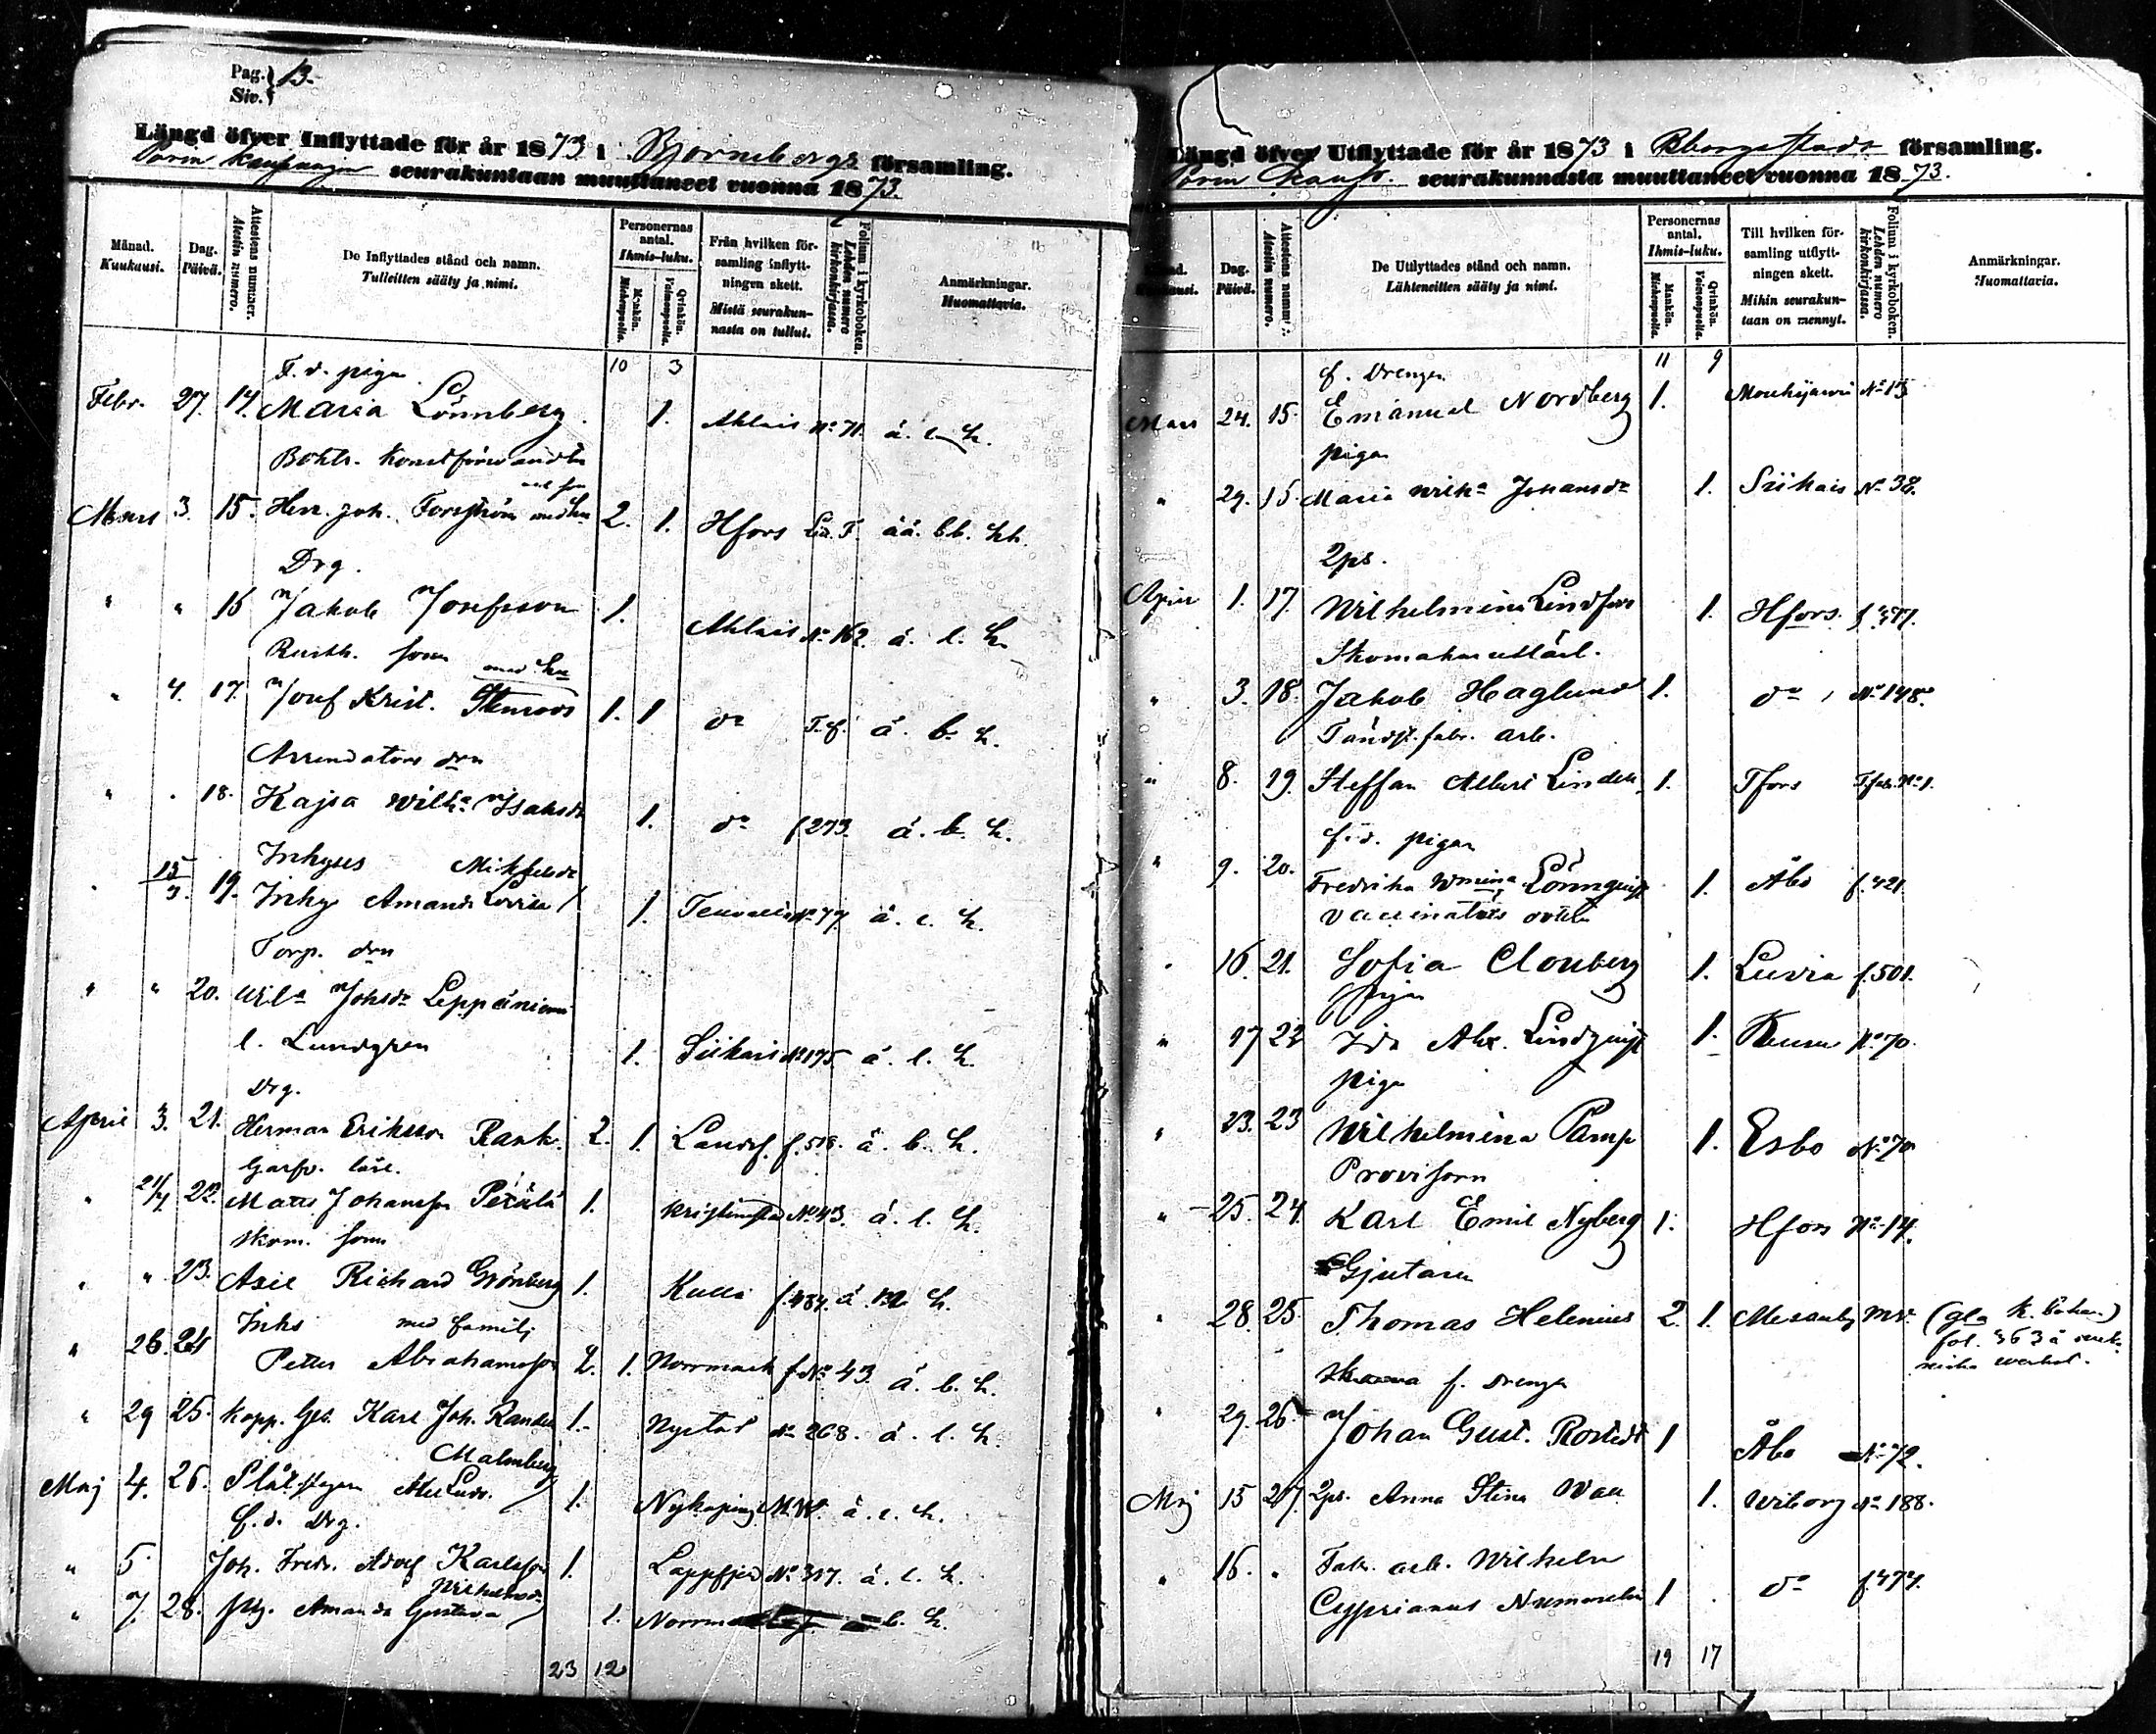 Pag. } 13.
Siv. }
Längd öfver Inflyttade för år 1873 i Björneborgs församling.
Porin kaupungin seurakuntaan muuttaneet vuonna 1873.
Månad. Kuukausi.
Dag. Päivä.
Attestens nummer. Atestin numero.
De Inflyttades stånd och namn. Tulleitten sääty ja nimi.
Personernas antal. Ihmis-luku.
Mankön. Miehenpuolia.
Qvinkön. Vaimonpuolia.
Från hvilken församling inflyttningen skett. Mistä seurakunnasta on tullut.
Folium i kyrkoboken. Lehden numero kirkonkirjassa.
Anmärkningar. Huomattavia.
10 3
F. d. piga
Febr. 27. 14. Maria Lönnberg 1. Ahlais No 71. á. l. h.
Boktr. Konstförvandten
Mars 3. 15. Herr. Joh. Forsström 2. 1. Hfors Litt. F. áá. bb. hh.
Drg.
" " 16 Jakob Josefsson 1. Ahlais No 162. á. l. h.
Rusth. son med hu
" 4. 17. Josef Krist. Stenroos 1. 1 do T. f. á. b. h.
Arrendators drn
" . 18. Kajsa Wilh:a Isaksdr 1. do f 273. á. b. h.
Inhyses
15/3. 19. Inhy Amanda Lovisa 1. No 77. á. l. h.
Torp. drn
" " 20. Wil:a Johsdr Leppäniemi
l. Lundgren 1. Siikais No 175 á. l. h.
Drg.
April 3. 21. Herman Eriksson Rank. 2. 1. Landsf. f. 518. á. b. h.
Garfv. lärl.
" 21/4 22. Matts Johansson Petälä 1. Kristinestad No 43. á. l. h.
skom. son
" " 23. Axel Richard Grönberg 1. Kulla f. 484. á. h.
Inhs med familj
" 26. 24 Petter Abrahamsson 2. 1. Norrmark f No 43 á. b. h.
" 29 25. Kopp. Ges. Karl Joh. Rander 1. Nystad No 268. á. l. h.
Malmberg
Maj 4. 26. Plåtslagar Alex Ludv. 1. Nyköping M. W. á. l. h.
f. d. Drg.
" 5 Joh. Fredr. Adolf Karlsson 1. Lappfjerd No 317. á. l. h.
Wilhelmsdr
" 7. 28. Pig. Amanda Gustava 1. b. h.
23 12
Längd öfver Utflyttade för år 1873 i Bborgs stads församling.
Porin kaup. seurakunnasta muuttaneet vuonna 1873.
Dag. Päivä.
Attestens nummer. Atestin numero.
De Utflyttades stånd och namn. Lähteneitten sääty ja nimi.
Personernas antal. Ihmis-luku.
Mankön. Miehenpuolia.
Qvinkön. Vaimonpuolia.
Till hvilken församling utflyttningen skett. Mihin seurakuntaan on mennyt.
Folium i kyrkoboken. Lehden numero kirkonkirjassa.
Anmärkningar. Huomattavia.
11 9
f. Drengen
Mars 24. 15. Emanuel Nordberg 1. Mouhijärvi No 13
pigan
" 29. 15. Maria Wilh:a Johansdr 1. Siikais No 38.
2ps.
April 1. 17. Wilhelmina Lindfors 1. Hfors.
Skomakarelärl.
" 3. 18. Jakob Haglund 1. do No 148.
Tändst. fabr. arb.
" 8. 19. Steffan Albert Linden 1. Tfors T.fab. No 1.
f. d. pigan
" 9. 20. Fredrika Wmina Lönnquist 1. Åbo f. 421
Vaccinators dotter
" 16. 21. Sofia Clonberg 1. Luvia f. 501.
pigan
" 17 22 Ida Alex. Lindquist 1. No 70.
piga
" 23. 23 Wilhelmina Pamp 1. Esbo No 70
Provisorn
" 25. 24. Karl Emil Nyberg 1. Hfors No 14.
Gjutaren
" 28. 25. Thomas Helenius 2. 1. Mesuby (gla k. boken)
fol. 363 á
f. drengen
" 29. 26. Johan Gust. Rostedt 1 Åbo No 72.
Maj 15 27. 2ps. Anna Stina Wall 1. Wiborg No 188.
" 16. " Fab. arb. Wilhelm
Cyprianus Nummelin 1 do f. 477.
19 17